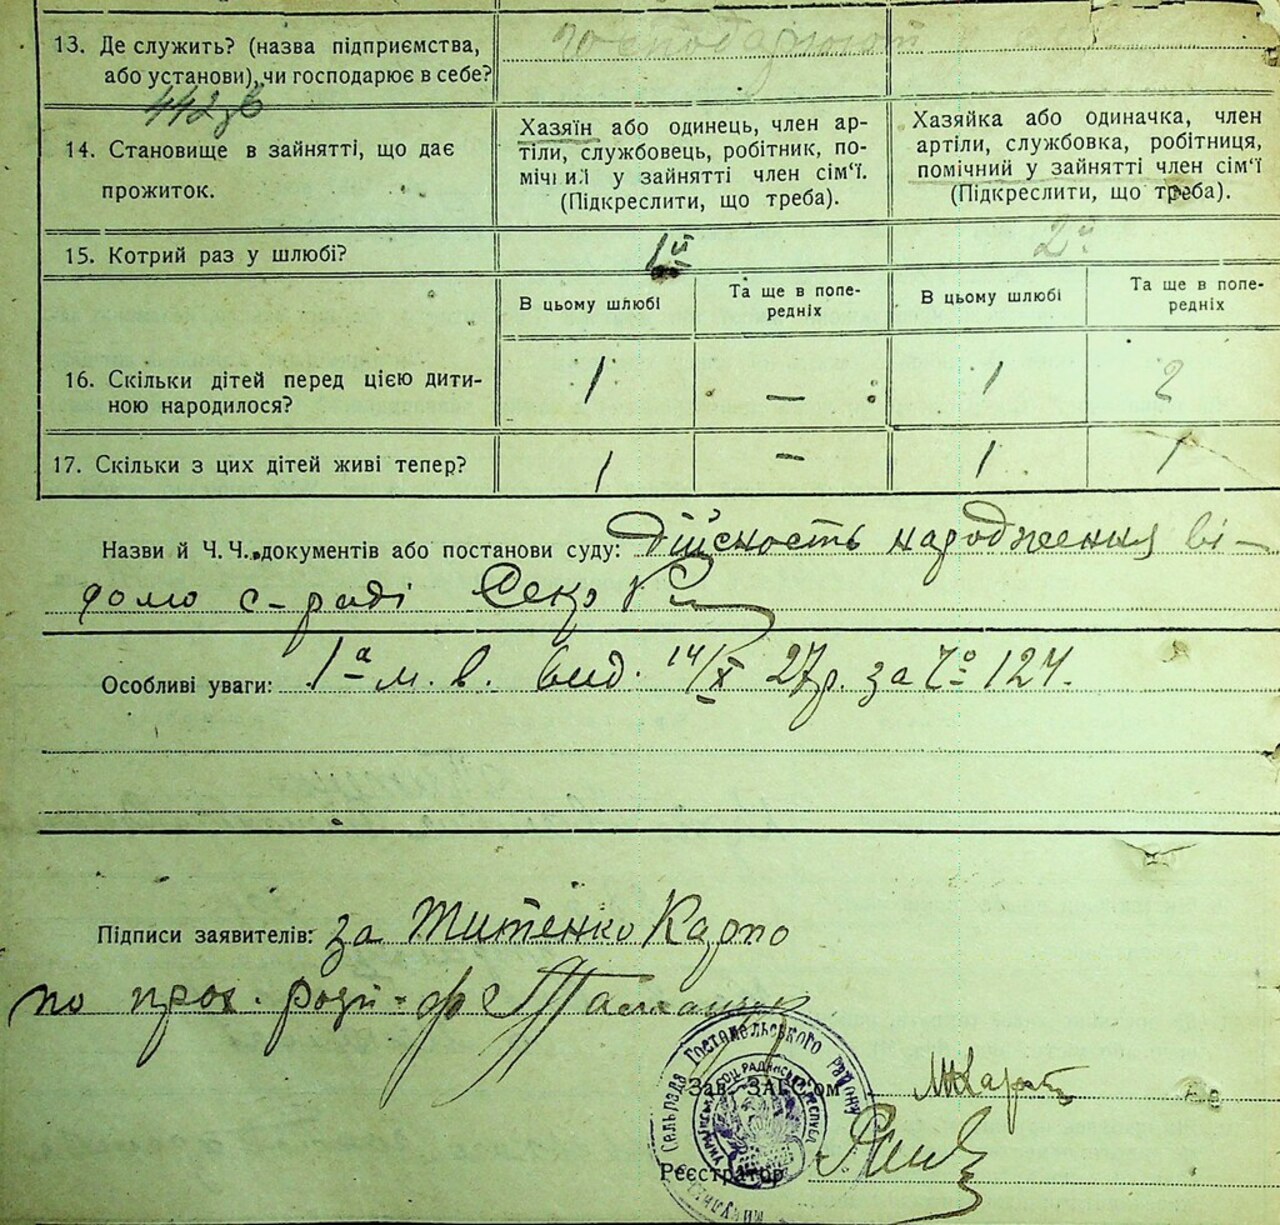 13. Де служить? (назва підприємства,
або установи), чи господарює в себе?
господарюют
442 зв
14. Становище в зайнятті, що дає
прожиток.
Хазяїн або одинець, член ар-
тіли, службовець, робітник, по-
мічний у зайнятті член сім'ї.
(Підкреслити, що треба).
Хазяйка або одиначка, член
артіли, службовка, робітниця,
помічний у зайнятті член сім'ї
(Підкреслити, що треба).
15. Котрий раз у шлюбі? 1й 2й
В цьому шлюбі
Та ще в попе-
редніх
В цьому шлюбі
Та ще в попе-
редніх
16. Скільки дітей перед цією дити-
ною народилося? 1 — 1 2
17. Скільки з цих дітей живі тепер? 1 — 1 1
Назви й Ч.Ч. документів або постанови суду: Дійсность народження ві-
домо с-раді Секр
Особливі уваги: 1а м. в. вид. 14/X 27р. за Ч° 124.
Підписи заявителів: за Титенко Карпо
по прох.
Зав. ЗАГС'ом
Реєстратор
Сельрада Гостомельського району